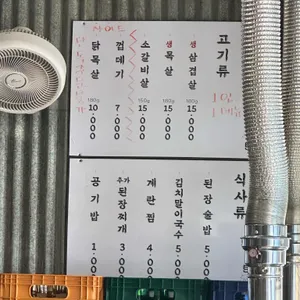 고기류
생삼겹살
15.000
생목살
160g
15.000
소갈비살
150g
15.000
사이드
껍데기
7.000
닭목살
180g
10.000
식사류
된장술밥
5.00
김치말이국수
5.00
계란찜
4.00
추가된장찌개
3.00
공기밥
1.00